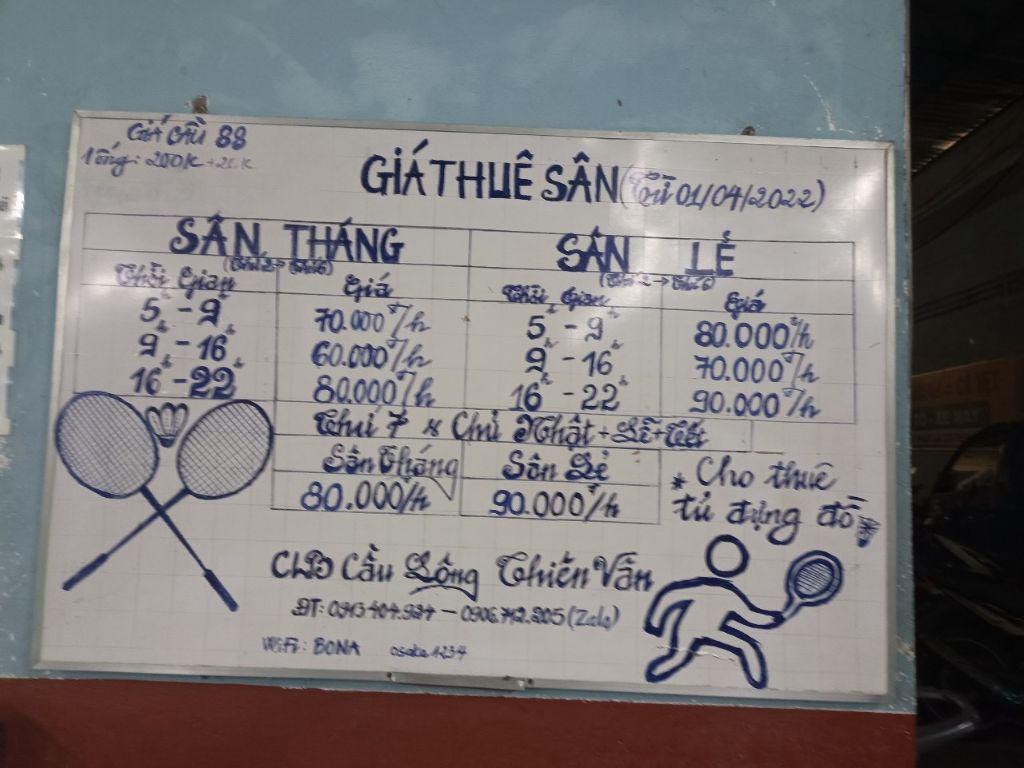 GIÁ CẦU 88
1 ống: 200K
GIÁ THUÊ SÂN (Từ 01/04/2022)
SÂN THÁNG SÂN LẺ
(Thứ 2 → Thứ 6) (Thứ 2 → Thứ 6)
Thời Gian Giá Thời Gian Giá
5h - 9h 70.000đ/h 5h - 9h 80.000đ/h
9h - 16h 60.000đ/h 9h - 16h 70.000đ/h
16h - 22h 80.000đ/h 16h - 22h 90.000đ/h
Thứ 7 & Chủ Nhật + Lễ + Tết
Sân Tháng Sân Lẻ
80.000đ/h 90.000đ/h
* Cho thuê
tủ đựng đồ
CLB Cầu Lông Thiên Vân
ĐT: (Zalo)
WiFi: BONA osaka1234